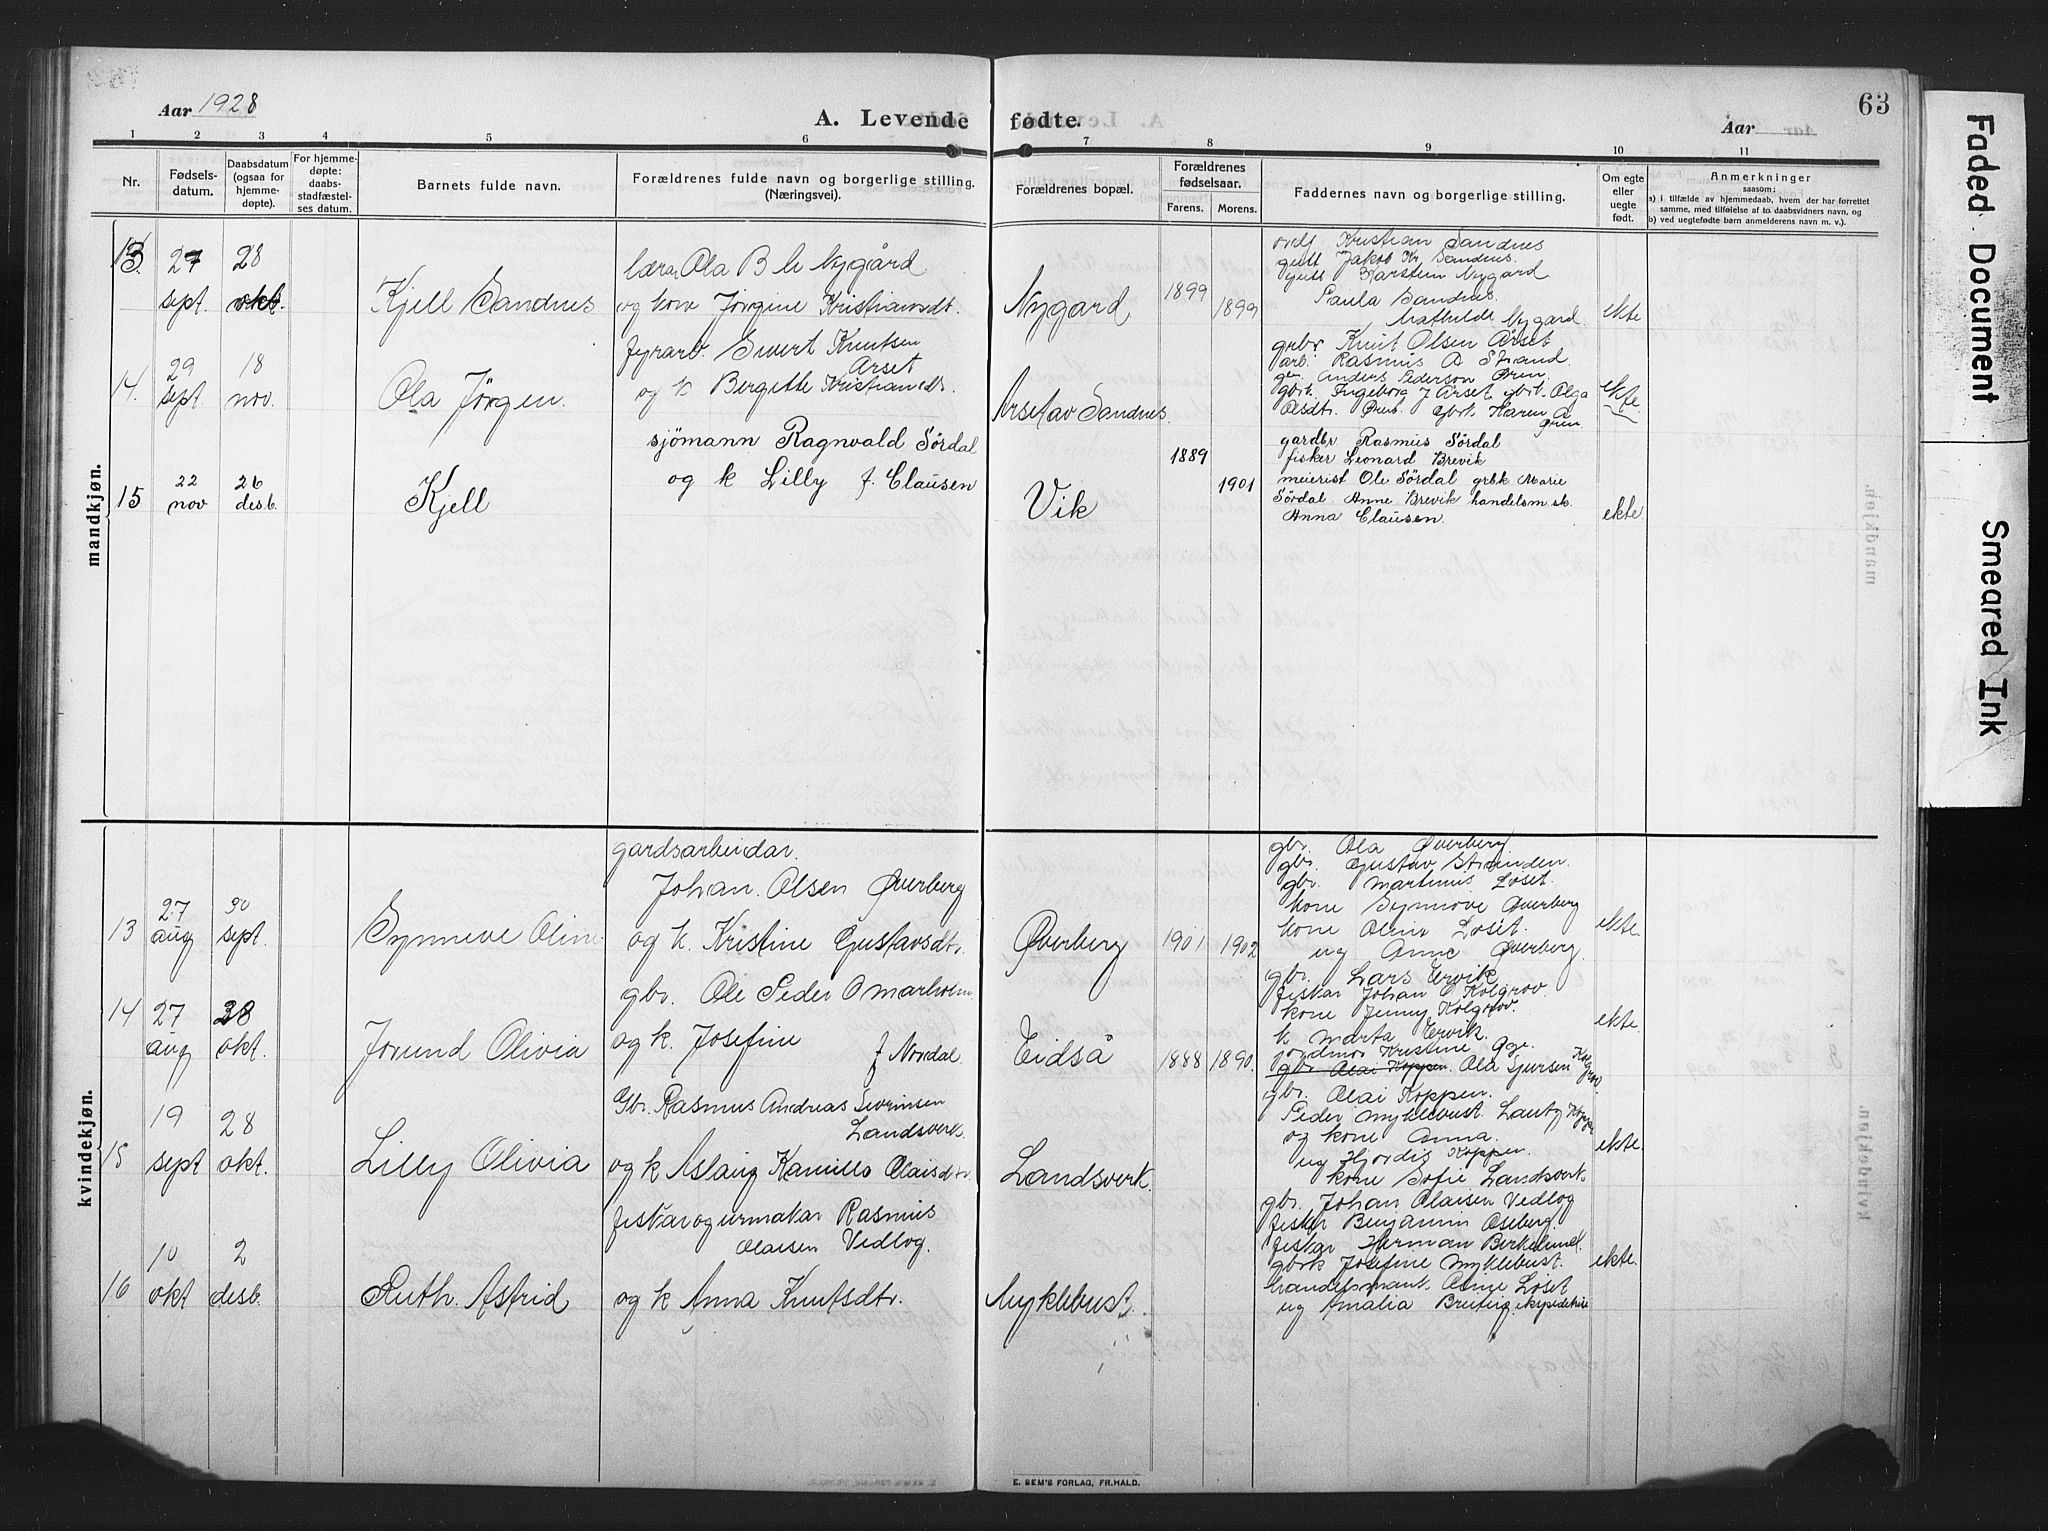 Aar 1928
A. Levende fødte.
Aar
63
1 2 3 4 5 6 7 8 9 10 11
Nr.
Fødsels-
datum.
Daabsdatum
(ogsaa for
hjemme-
døpte).
For hjemme-
døpte:
daabs-
stadfæstel-
ses datum.
Barnets fulde navn.
Forældrenes fulde navn og borgerlige stilling.
(Næringsvei).
Forældrenes bopæl.
Forældrenes
fødselsaar.
Farens. Morens.
Faddernes navn og borgerlige stilling.
Om egte
eller
uegte
født.
Anmerkninger
saasom:
a) i tilfælde av hjemmedaab, hvem der har forrettet
samme, med tilføielse af to daabsvidners navn, og
b) ved uegtefødte børn anmelderens navn m. v.).
mandkjøn.
13. 27 sept. 28 okt.
Kjell Sandnes
lærar Ola B Nygård
og kone Jörgine Kristiansdt.
Nygard
1899 1899
Kristian Sandnes
gutt Jakob Kr. Sandnes.
gutt Karsten Nygard
Paula Sandnes.
Mathilde Nygard.
ekte
14. 29 sept 18 nov.
Ola Jörgen.
fyrarb. Sivert Knutsen
Årset
og k Bergitte Kristiansdt.
Årset av Sandnes
grbr Knut Olsen Årset
arb. Rasmus A Strand.
Anders Pederson Øren.
gbrk. Ingeborg J Årset gbrk. Olga
Olsdtr. Øren gbrk. Karen A
Øren
ekte
15 22 nov 26 desb.
Kjell
sjömann Ragnvald Sördal
og k Lilly f. Clausen
Vik
1889
1901
gardbr Rasmus Sördal
fisker Leonard Brevik
meierist Ole Sördal grbk Marie
Sördal. Anne Brevik handelsm. sk.
Anna Clausen.
ekte
kvindekjøn.
13 27 aug 30 sept.
Synneve Oline
gardsarbeidar.
Johan. Olsen Øverberg
og k. Kristine Gustavsdtr.
Øverberg
1901 1902
gbr. Ola Øverberg.
gbr. Gustav Stranden.
gbr. Martinus Löset.
kone Synnöve Øverberg
kone Oline Löset.
ug Anne Øverberg.
ekte.
14 27 aug 28 okt.
Jorund Olivia
gbr. Ole Peder Omarholm
og k. Josefine
f Nordal.
Eidså
1888 1890.
gbr. Lars Ervik
fiskar Johan O Kolgrov.
kone Jenny Kolgrov.
k Marta Ervik.
jordmor Kristine Gge.
gbr Olai Koppen. Ola Sjursen Kolgrov
ekte.
15 19 sept 28 okt.
Lilly Olivia
Gbr. Rasmus Andreas Severinsen
Landsverk
og k Aslaug Kamilla Olaisdtr.
Landsverk.
gbr. Olai Koppen.
Peder Myklebust. Lauritz Koppen
og kone Anna.
ug Hjördis Koppen.
kone Sofie Landsverk.
ekte
16 10 okt 2 desb.
Ruth. Astrid
fiskar og urmakar Rasmus
Olaisen Vedlog.
og k Anna Knutsdtr.
Myklebust.
gbr. Johan Olaisen Vedlog
fisker Benjamin Oseberg.
fiskar Herman Birkelund.
gbrk Josefine Myklebust.
handelsmank. Oline Löset
ug Amalia Breiteig ekspeditrise
ekte.
E. SEM'S FORLAG, FR.HALD.
Faded Document
Smeared Ink